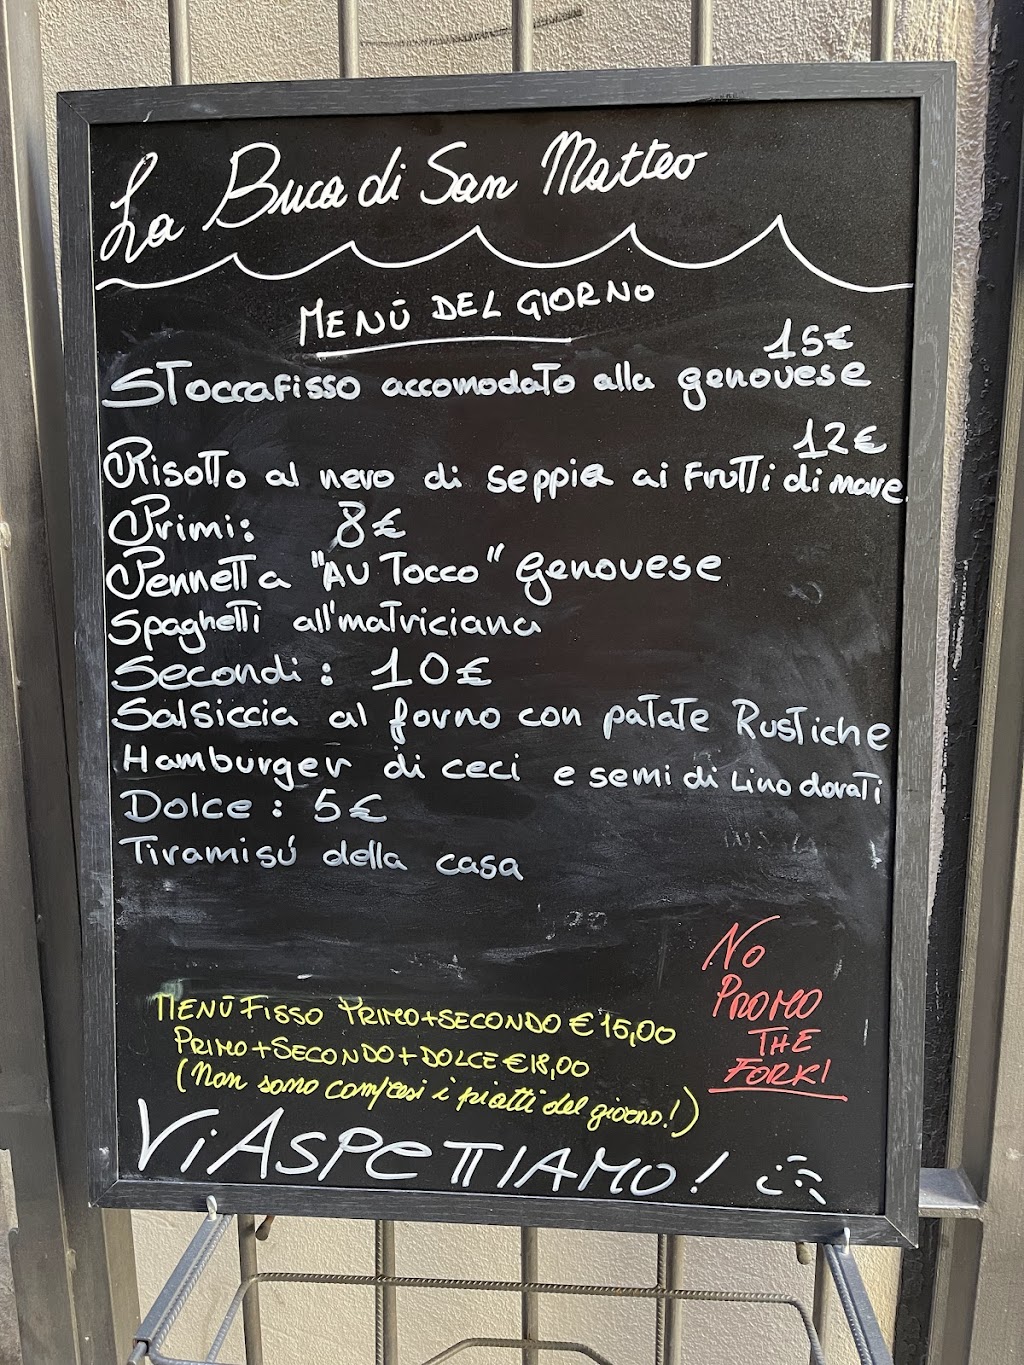 La Buca di San Matteo
MENÙ DEL GIORNO
15€
Stoccafisso accomodato alla genovese
12€
Risotto al nero di seppia ai Frutti di mare
Primi: 8€
Pennetta "AU Tocco" genovese
Spaghetti all'matriciana
Secondi: 10€
Salsiccia al forno con patate Rustiche
Hamburger di ceci e semi di Lino dorati
Dolce: 5€
Tiramisú della casa
No
PROMO
THE
FORK!
MENÙ FISSO PRIMO+SECONDO €15,00
PRIMO+SECONDO+DOLCE €18,00
(Non sono compresi i piatti del giorno!)
Vi ASPETTIAMO!